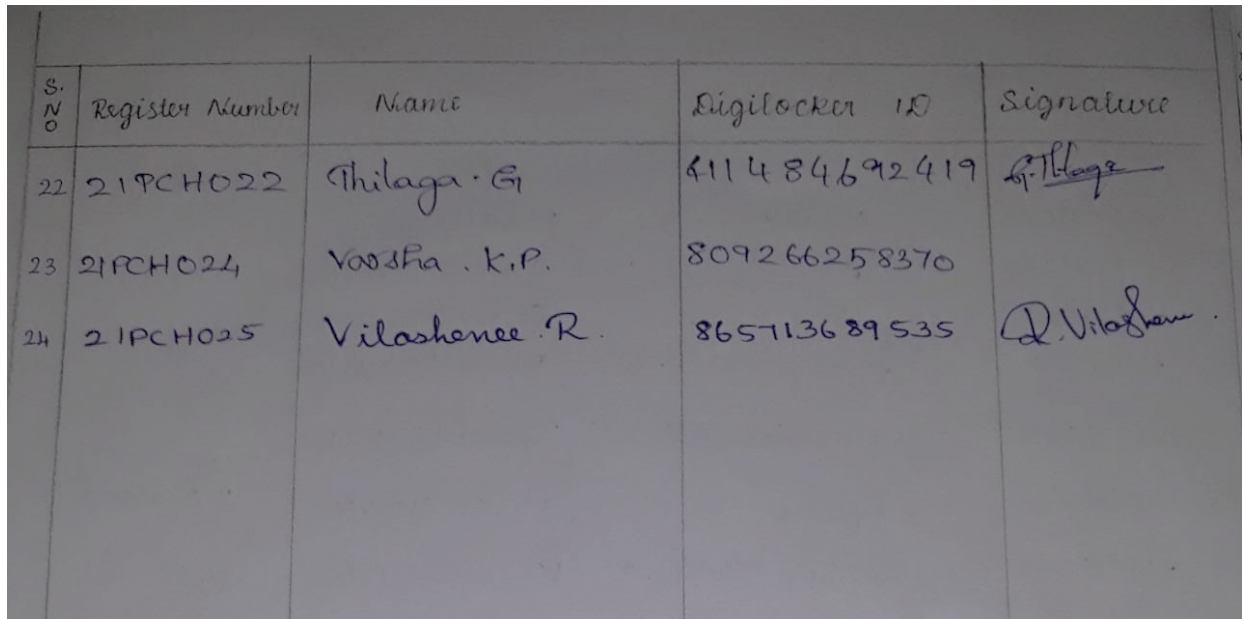 S.NO Register Number Name Digilocker ID Signature
22 21PCH022 Thilaga. G 411484692419 G.Thilaga
23 21PCH024 Varsha. K.P. 809266258370
24 21PCH025 Vilashenee. R. 865713689535 R.Vilashenee.